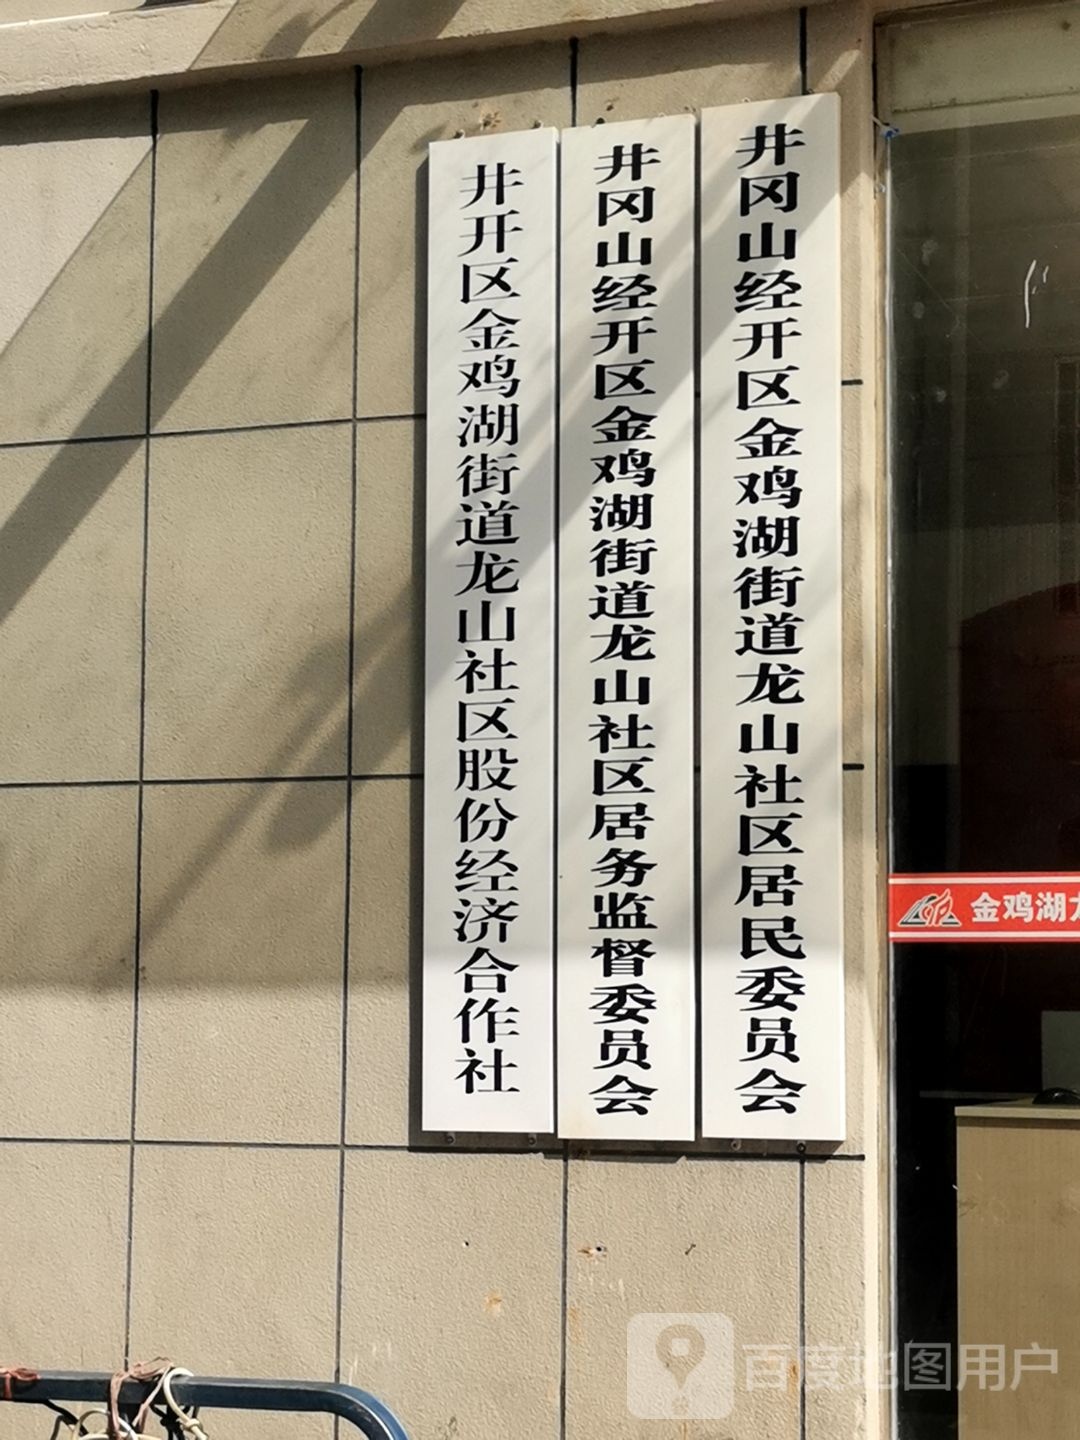 井冈山经开区金鸡湖街道龙山社区居民委员会
井冈山经开区金鸡湖街道龙山社区居务监督委员会
井开区金鸡湖街道龙山社区股份经济合作社
金鸡湖
百度地图用户